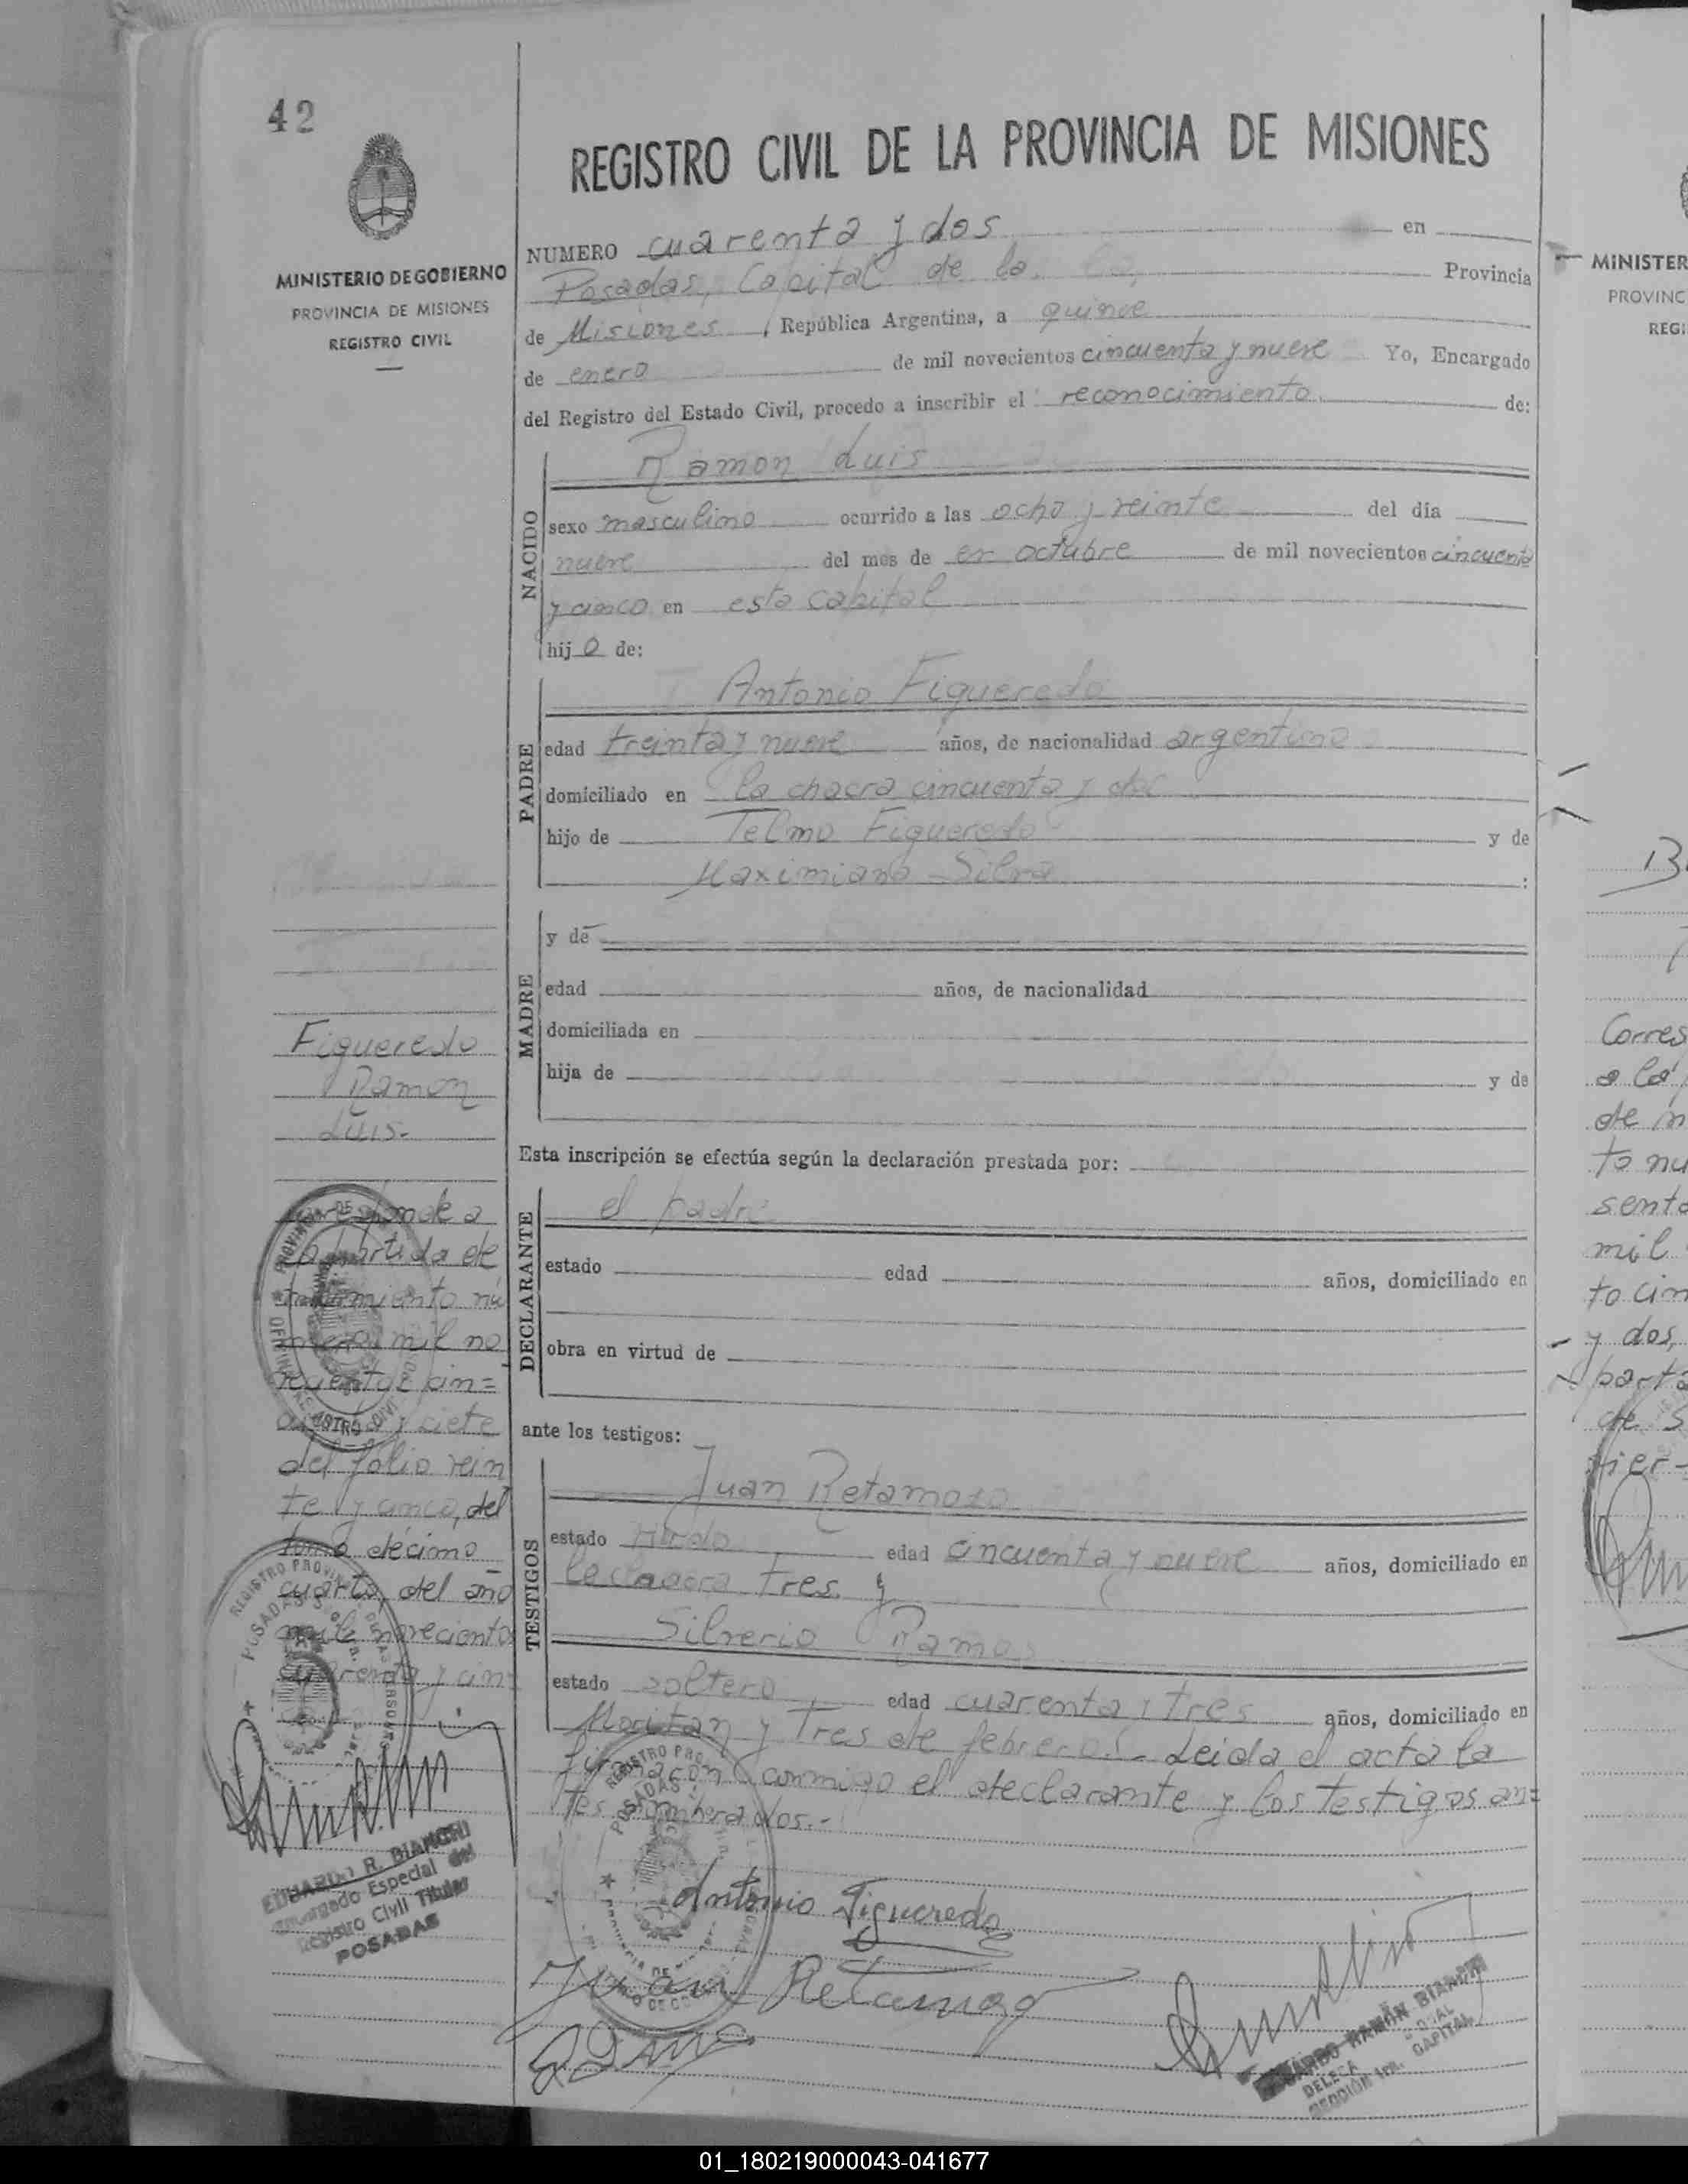 42
REGISTRO CIVIL DE LA PROVINCIA DE MISIONES
MINISTERIO DE GOBIERNO
PROVINCIA DE MISIONES
REGISTRO CIVIL
NUMERO cuarenta y dos en
Posadas, Capital de la Provincia
de Misiones, República Argentina, a quince
de enero de mil novecientos cincuenta y nueve Yo, Encargado
del Registro del Estado Civil, procedo a inscribir el reconocimiento de:
NACIDO
Ramon Luis
sexo masculino ocurrido a las ocho y veinte del día
nueve del mes de en octubre de mil novecientos cincuenta
y cinco en esta capital
hijo de:
PADRE
Antonio Figueredo
edad treinta y nueve años, de nacionalidad argentino
domiciliado en la chacra cincuenta y dos
hijo de Telmo Figueredo y de
Maximiana Silva :
MADRE
y de
edad años, de nacionalidad
domiciliada en
hija de y de
Figueredo
Ramon
Luis.-
Esta inscripción se efectúa según la declaración prestada por:
DECLARANTE
el padre
estado edad años, domiciliado en
obra en virtud de
corresponde a
la partida de
mil no
cin=
y siete
del folio vein
te y cinco, del
tomo décimo
cuarto, del año
mil novecientos
cin
ante los testigos:
TESTIGOS
Juan Retamozo
estado viudo edad cincuenta y nueve años, domiciliado en
la chacra tres y
Silverio Ramos
estado soltero edad cuarenta y tres años, domiciliado en
y Tres de febrero.- Leida el acta la
firmaron conmigo el declarante y los testigos an=
tes nombrados.-
Antonio Figueredo
Juan Retamozo
EDUARDO R. BIANCHI
Encargado Especial del
Registro Civil Titular
POSADAS
EDUARDO RAMÓN BIANCHI
SECCIÓN 1ra. CAPITAL
MINISTER
PROVINC
REGI
Corres
a la
de in
to nu
sento
mil
to cin
y dos,
parta
de S
01_180219000043-041677